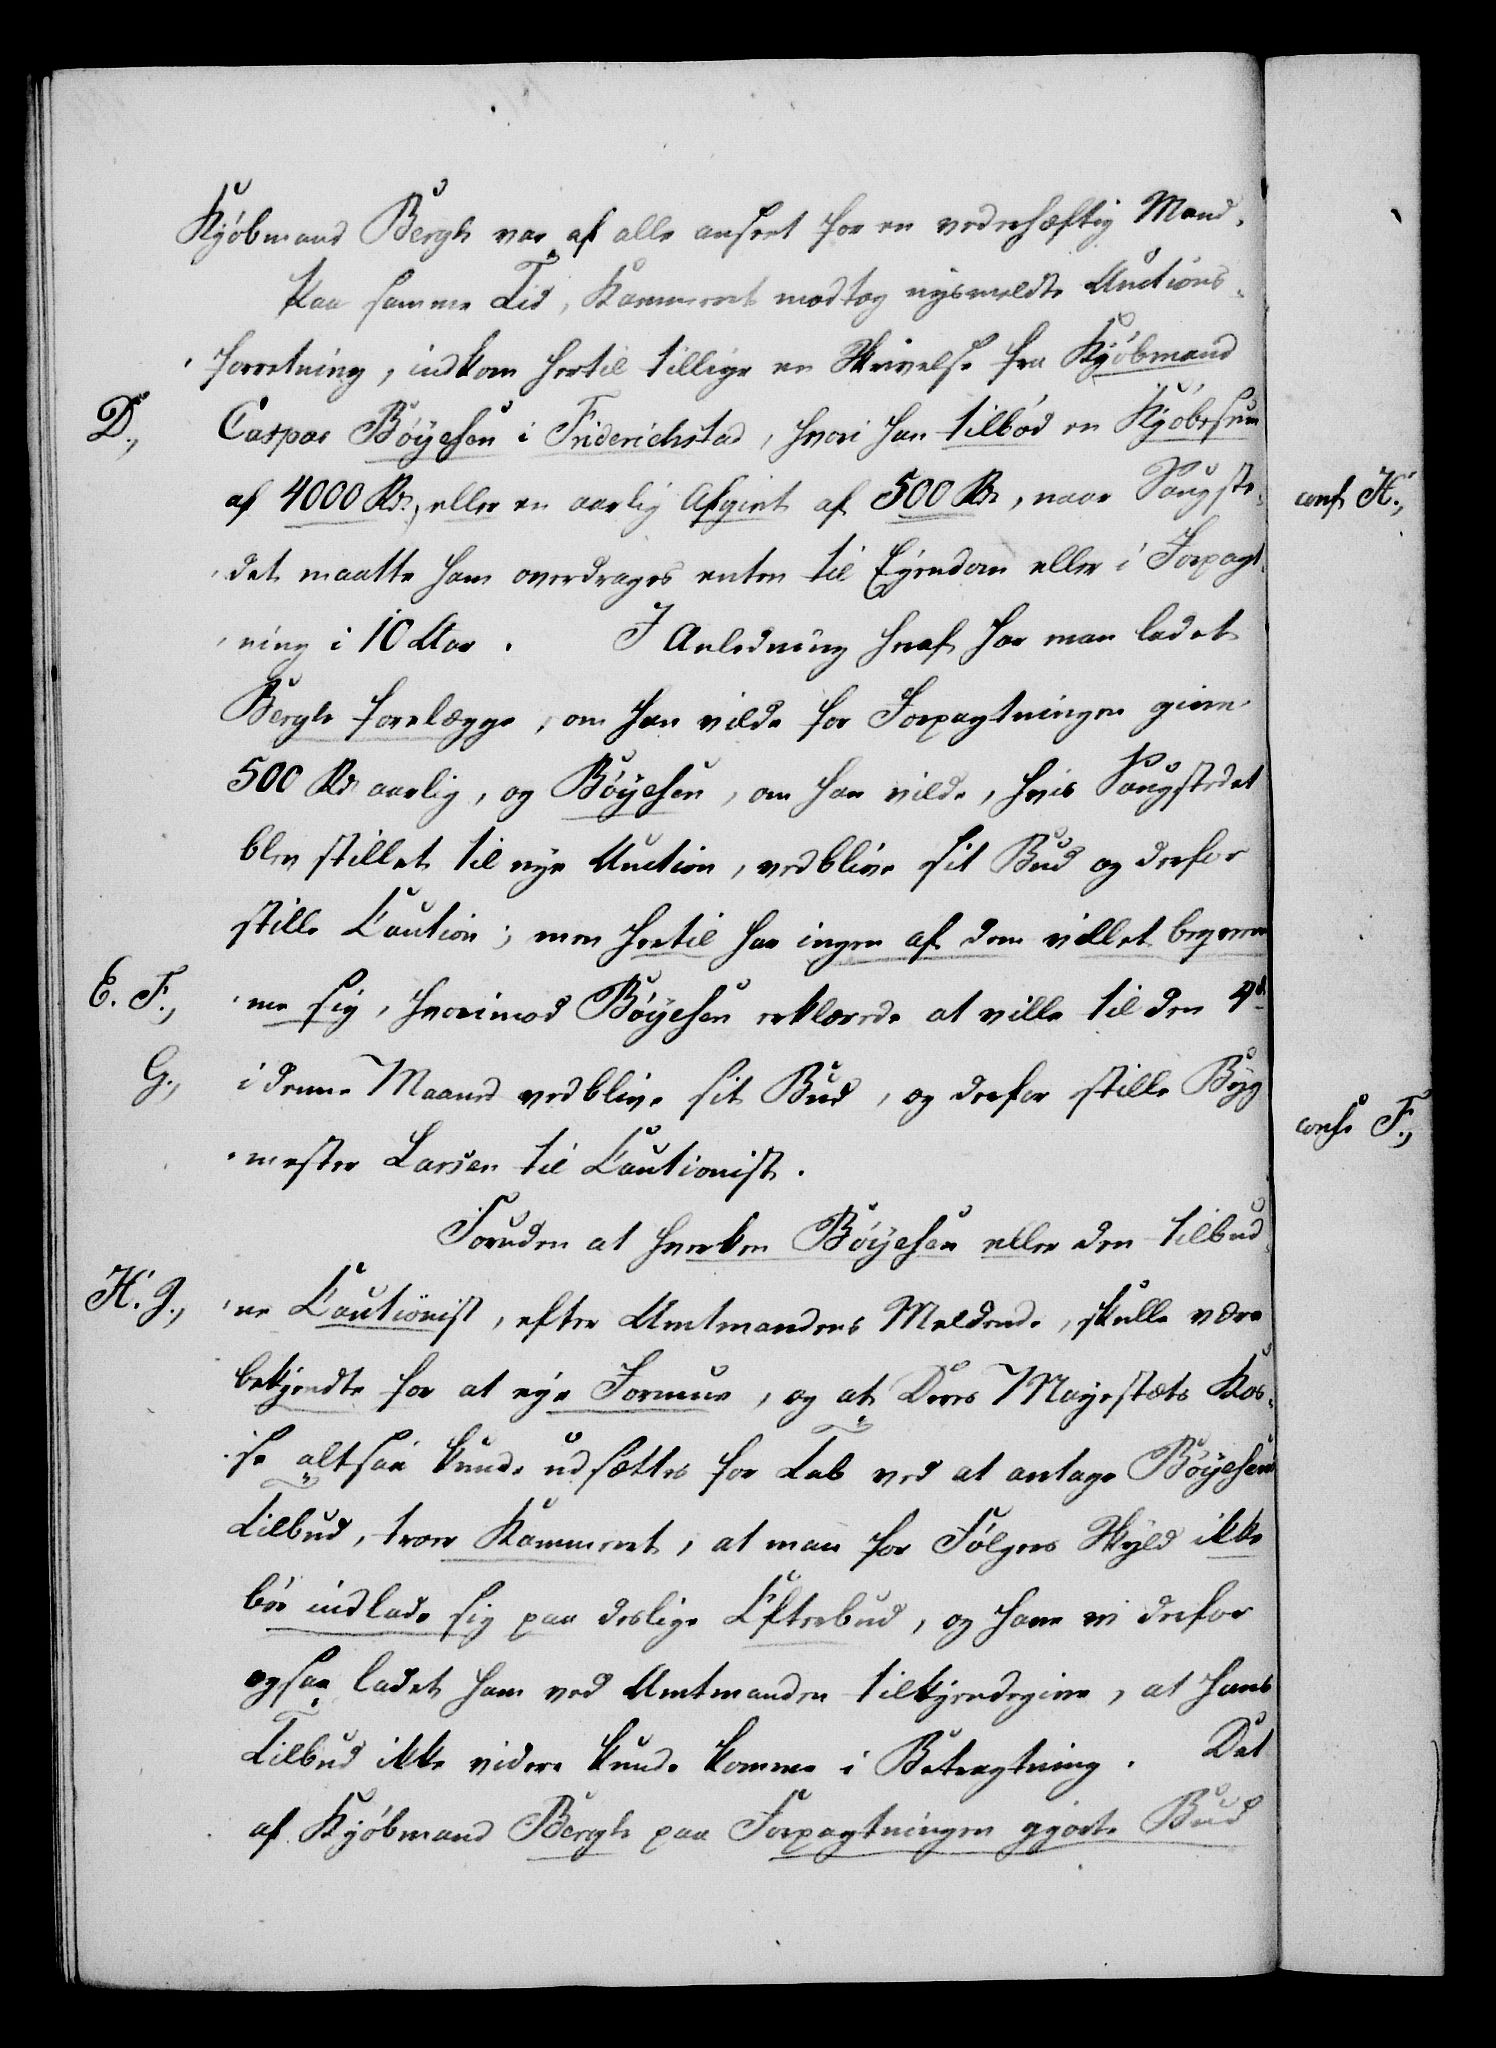 Kjöbmand Bergh var af alle anseet for en vederhæftig Mand.
Paa samme Tid, Kammeret modtog nysmeldte Auctions-
forretning, indkom hertil tillige en Skrivelse fra Kjöbmand
D., Caspar Böÿesen i Friderichstad, hvori han tilböd en Kjöbesum
af 4000 Rd., eller en aarlig Afgivt af 500 Rd, naar Saugste-
conf. H.,
det maatte ham overdrages enten til Eÿendom eller i Forpagt-
ning i 10 Aar. I Anledning heraf har man ladet
Bergh forelægge, om han vilde for Forpagtningen give
500 Rd aarlig, og Böÿesen, om han vilde, hvis Saugstedet
blev stillet til nye Auction, vedblive sit Bud og derfor
stille Caution; men hertil har ingen af dem villet beqvem-
E. F., me sig, hvorimod Böÿesen erklærede at ville til den 4d
G., i denne Maaned vedblive sit Bud, og derfor stille Byg
conf. F.,
mester Larsen til Cautionist.
Foruden at hverken Böÿesen eller den tilbud-
H. J., ne Cautionist, efter Amtmandens Meldende, skulle være
bekjendte for at eÿe Formue, og at Deres Mayestæts Kas-
se altsaa kunde udsættes for Tab ved at antage Böÿesens
Tilbud, troer Kammeret, at man for Fölgens Skyld ikke
bör indlade sig paa deslige Efterbud, og have vi derfor
ogsaa ladet ham ved Amtmanden tilkjendegive, at hans
Tilbud ikke videre kunde komme i Betragtning. Det
af Kjöbmand Bergh paa Forpagtningen gjorte Bud